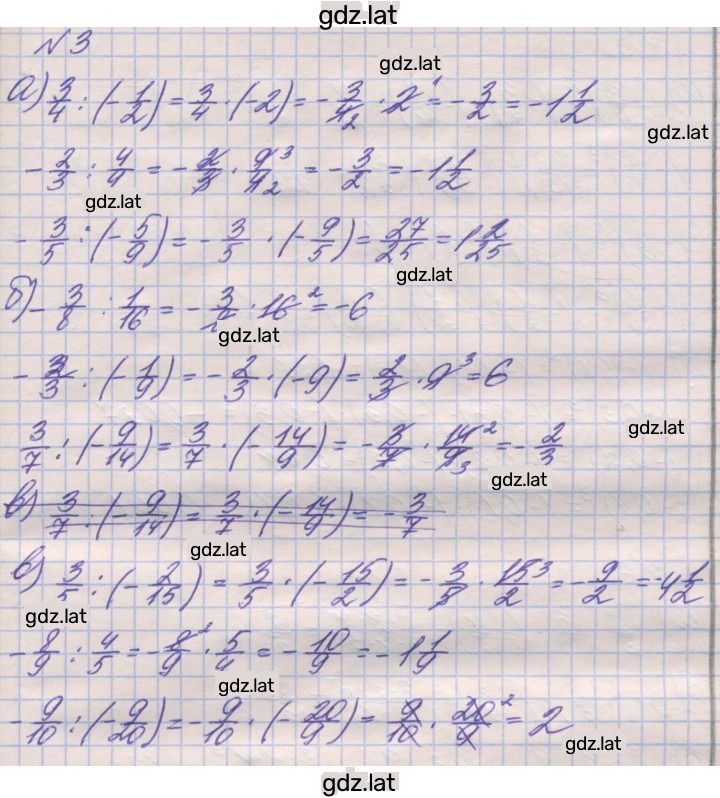 gdz.lat
№3
gdz.lat
а) 3/4 : (-1/2) = 3/4 · (-2) = -3/4 2 · 2 1 = -3/2 = -1 1/2
gdz.lat
-2/3 : 4/9 = -2/3 · 9 3/4 2 = -3/2 = -1 1/2
gdz.lat
-3/5 : (-5/9) = -3/5 · (-9/5) = 27/25 = 1 2/25
gdz.lat
б) -3/8 : 1/16 = -3/8 · 16 2 = -6
gdz.lat
-2/3 : (-1/9) = -2/3 · (-9) = 2/3 · 9 3 = 6
gdz.lat
3/7 : (-9/14) = 3/7 · (-14/9) = -3/7 · 14 2/9 3 = -2/3
gdz.lat
в) 3/7 : (-9/14) = 3/7 · (-14/9) = -3/7
gdz.lat
в) 3/5 : (-2/15) = 3/5 · (-15/2) = -3/5 · 15 3/2 = -9/2 = -4 1/2
gdz.lat
-8/9 : 4/5 = -8/9 · 5/4 = -10/9 = -1 1/9
gdz.lat
-9/10 : (-9/20) = -9/10 · (-20/9) = 9/10 · 20 2/9 = 2
gdz.lat
gdz.lat